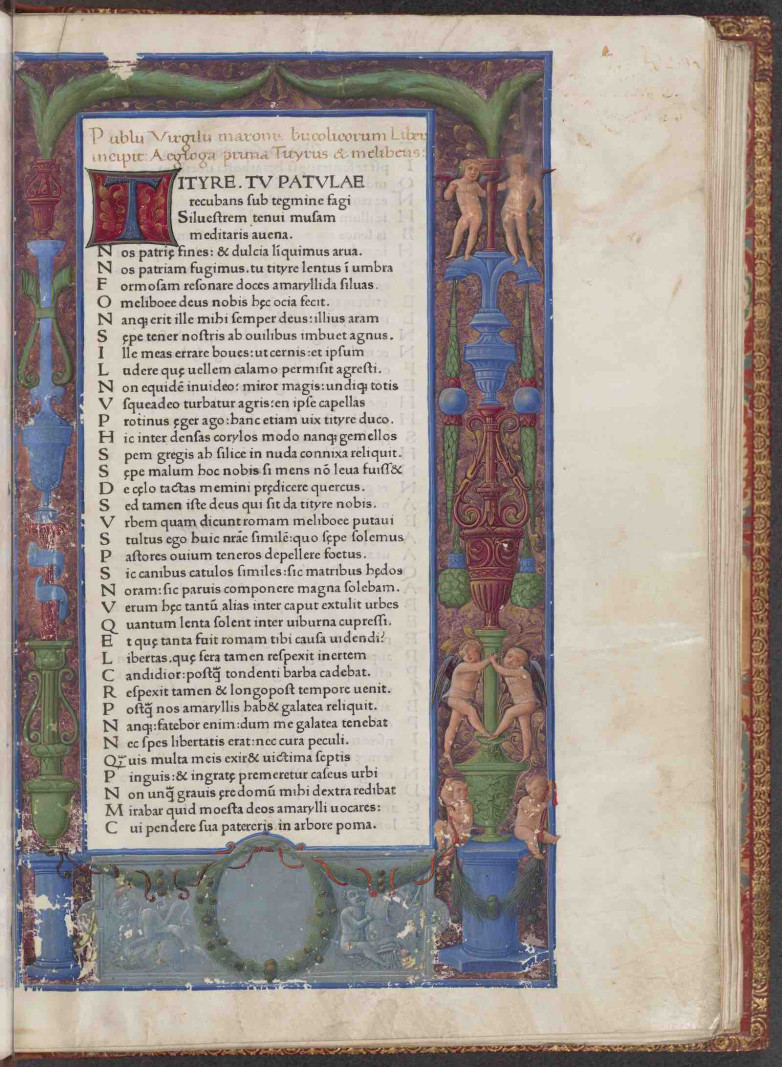 Publii Virgilii maronis bucolicorum Liber
incipit: Aegloga prima Tityrus & melibeus:
TITYRE. TV PATVLAE
recubans sub tegmine fagi
Siluestrem tenui musam
meditaris auena.
Nos patrię fines: & dulcia liquimus arua.
Nos patriam fugimus. tu tityre lentus ī umbra
Formosam resonare doces amaryllida siluas.
O meliboee deus nobis hęc ocia fecit.
Nanq; erit ille mihi semper deus: illius aram
Sępe tener nostris ab ouilibus imbuet agnus.
Ille meas errare boues: ut cernis: et ipsum
Ludere quę uellem calamo permisit agresti.
Non equidē inuideo: miror magis: undiq; totis
Vsqueadeo turbatur agris: en ipse capellas
Protinus ęger ago: hanc etiam uix tityre duco.
Hic inter densas corylos modo nanq; gemellos
Spem gregis ab silice in nuda connixa reliquit.
Sępe malum hoc nobis si mens nō leua fuiss&
De cęlo tactas memini prędicere quercus.
Sed tamen iste deus qui sit da tityre nobis.
Vrbem quam dicunt romam meliboee putaui
Stultus ego huic nrāe similē: quo sępe solemus
Pastores ouium teneros depellere foetus.
Sic canibus catulos similes: sic matribus hędos
Noram: sic paruis componere magna solebam.
Verum hęc tantū alias inter caput extulit urbes
Quantum lenta solent inter uiburna cupressi.
Et quę tanta fuit romam tibi causa uidendi?
Libertas. quę sera tamen respexit inertem
Candidior: postq̄ tondenti barba cadebat.
Respexit tamen & longo post tempore uenit.
Postq̄ nos amaryllis hab& galatea reliquit.
Nanq;: fatebor enim: dum me galatea tenebat
Nec spes libertatis erat: nec cura peculi.
Quis multa meis exir& uictima septis
Pinguis: & ingratę premeretur caseus urbi
Non unq̄ grauis ęre domū mihi dextra redibat
Mirabar quid moesta deos amarylli uocares:
Cui pendere sua patereris in arbore poma.